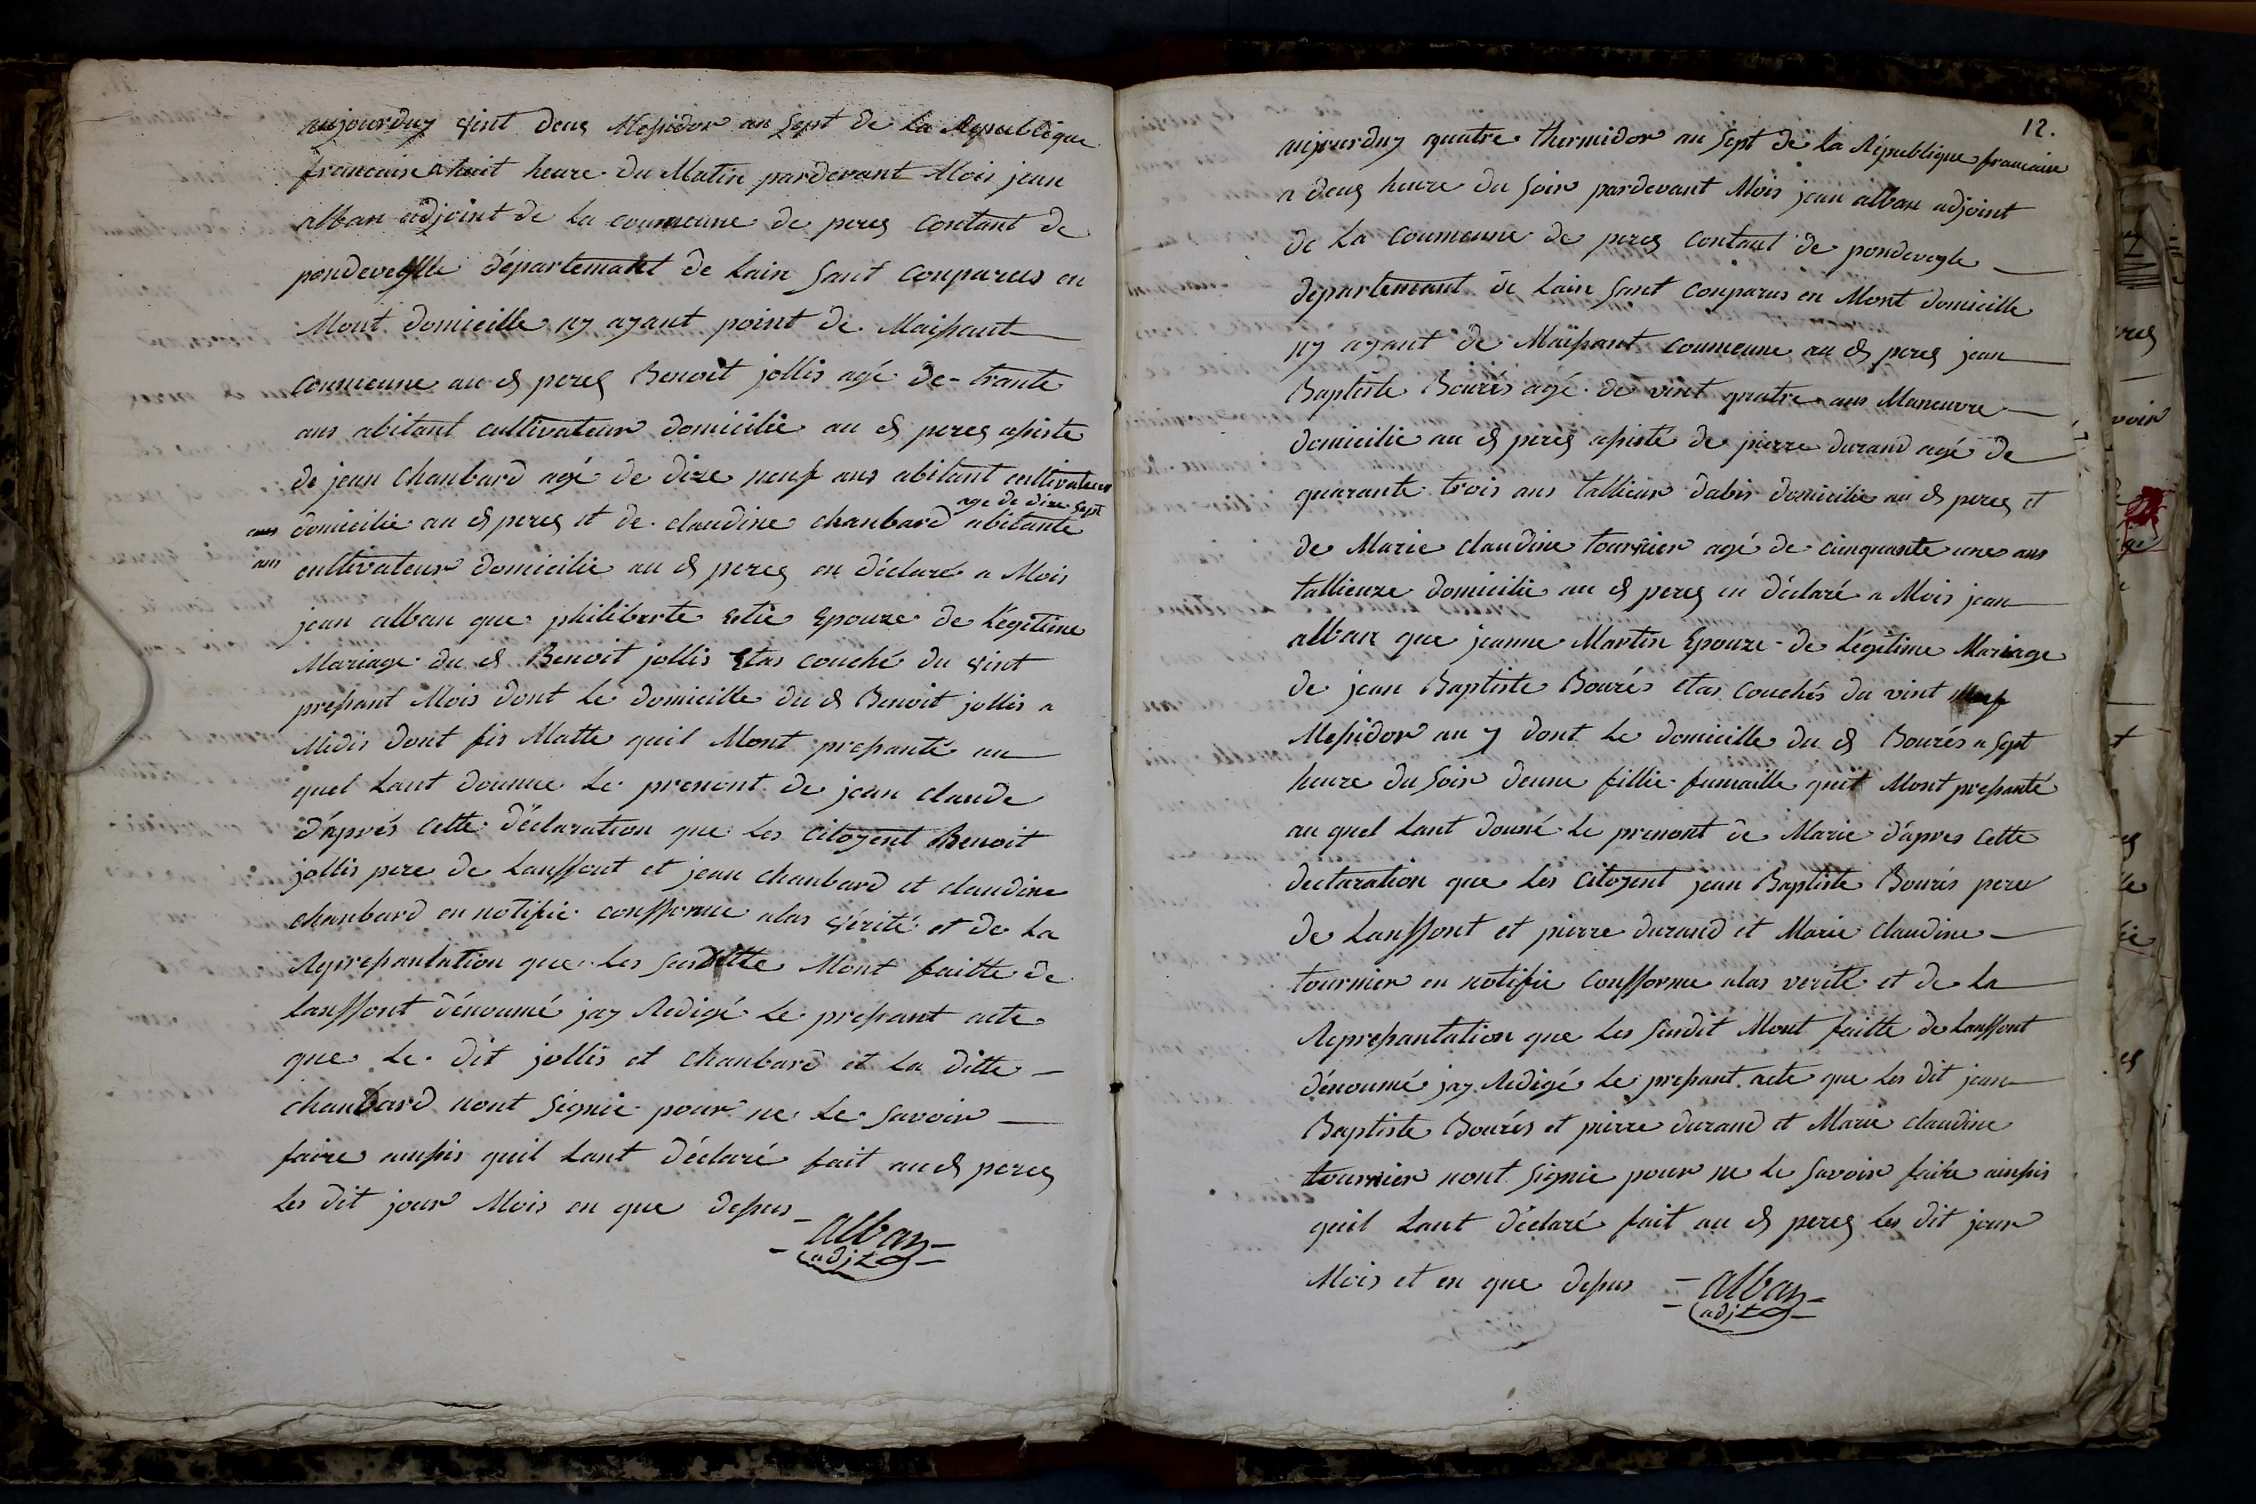 aujourduy vint deus Messidor an sept de la Republique
francaise a huit heure du Matin pardevant Mois jean
alban adjoint de la coumeune de peres contant de
pondeveylle départemant de lain sant conparus en
Mont domicille ny ayant point de Maissant
coumeune au d peres Benoit jollis agé de trante
ans abitant cultivateur domicilie au d peres assiste
de jean chanbard agé de dize neuf ans abitant cultivateur
age de dize sept
ans domicilie au d peres et de claudine chanbard abitante
ans cultivateur domicilie au d peres on déclaré a Mois
jean alban que philiberte Epouze de légitime
Mariage du d Benoit jollis Etas couché du vint
pressant Mois dont le domicille du d Benoit jollis a
Midis dont fis Malle quil Mont pressanté au
quel lant donnue le prenont de jean claude
d'après cette déclaration que les citoyent Benoit
jollis pere de lanffont et jean chanbard et claudine
chanbard on notifie confforme alas vérité et de la
Representation que les susditte Mont faitte de
lanffont dénoumé jay Redigé le pressant acte
que le dit jollis et chanbard et la ditte
chanbard nont signie pour ne le savoir
faire ainssis quil lant déclaré fait au d peres
les dit jour Mois en que dessus
alban
adjt
12.
aujourduy quatre thermidor an sept de la République francaise
a deus heure du soir pardevant Mois jean alban adjoint
de la coumeune de peres contant de pondeveyle
departemant de lain sant conparus en Mont domicille
ny ayant de Maissant coumeune au d peres jean
Baptiste Bourés agé de vint quatre ans Maneuvre
domicilie au d peres assisté de pierre durand agé de
quarante trois ans tallieur dabis domicilie au d peres et
de Marie claudine tournier agé de cinquante une ans
tallieuze domicilie au d peres on déclaré a Mois jean
alban que jeanne Martin Epouze de légitime Mariage
de jean Baptiste Bourés etas couchés du vint neuf
Messidor an 7 dont le domicille du d Bourés a sept
heure du soir deune fillie fumaille quil Mont pressanté
au quel lant donné le prenont de Marie d'apres cette
declaration que les citoyent jean Baptiste Bourés pere
de lanffont et pierre durand et Marie claudine
tournier on notifie confforme alas verité et de la
Repressantation que les sudit Mont faitte de lanffont
dénoumé jay Redigé le pressant acte que les dit jean
Baptiste Bourés et pierre durand et Marie claudine
tournier nont signie pour ne le savoir faire ainssis
quil lant déclaré fait au d peres les dit jour
Mois et en que dessus
alban
adjt